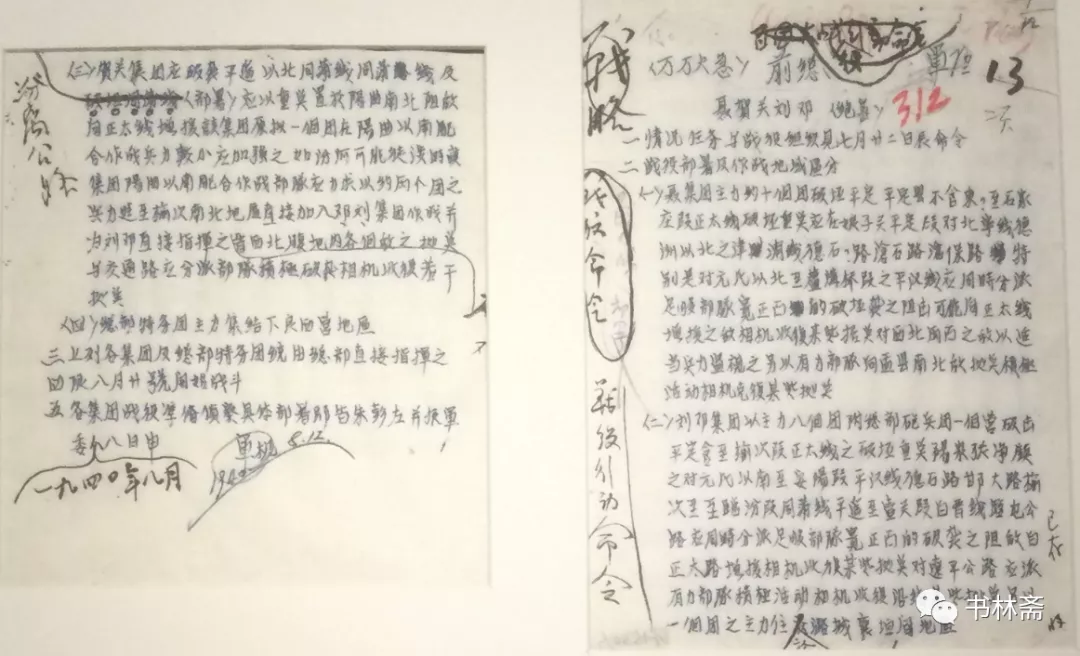 战略
战役命令
战役行动命令
(万万火急)
前总
军挺
13
312
聂贺关刘邓
一 情况任务与战役组织见七月廿二日长命令
二 战役部署及作战地域区分
(一)聂集团主力约十个团破坏平定平定县不含东至石家
庄段正太线破坏重点应在娘子关平定段对北宁线德
州以北之津浦线德石路沧石路沧保路特
别是对元氏以北至卢沟桥段之平汉线应同时分派
足够部队宽正面的破袭之阻击可能向正太线
增援之敌相机收复某些据点对西北 面之敌以适
当兵力监视之另以有力部队向盂县南北敌据点积极
活动相机克复某些据点
(二)刘邓集团以主力八个团附总部炮兵团一个营破击
平定含至榆次段正太线之破坏重点阳泉张净镇
之对元氏以南至安阳段平汉线德石路邯大路榆
次至临汾段同蒲线平遥至壶关段白晋线临屯公
路应同时分派足够部队宽正面的破袭之阻敌向
正太路增援相机收复某些据点对辽平公路应派
有力部队积极活动相机收复沿线某些据点另以
一个团之主力位 潞城襄垣间地区
汾离公路
(三)贺关集团应破袭平遥以北同蒲线 线及
(部署)应以重点置于阳曲南北阻敌
向正太线增援该集团原拟一个团在阳曲以南配
合作战兵力数少应加强之如汾河可能徒涉时该
集团阳曲以南配合作战部队应力求以约两个团之
兵力进至榆次南北地区直接加入邓刘集团作战并
为刘邓直接指挥之 西北腹地内各个敌之据点
与交通路应分派部队积极破袭相机收复若干
据点
(四)总部特务团主力集结下良西营地区
三 上列各集团及总部特务团统由总部直接指挥之
四 限八月廿号开始战斗
五 各集团战役准备侦察具体部署即告朱彭左并报军
委 八日申
一九四〇年八月
军机 8.12.
1940
已存
书林斋